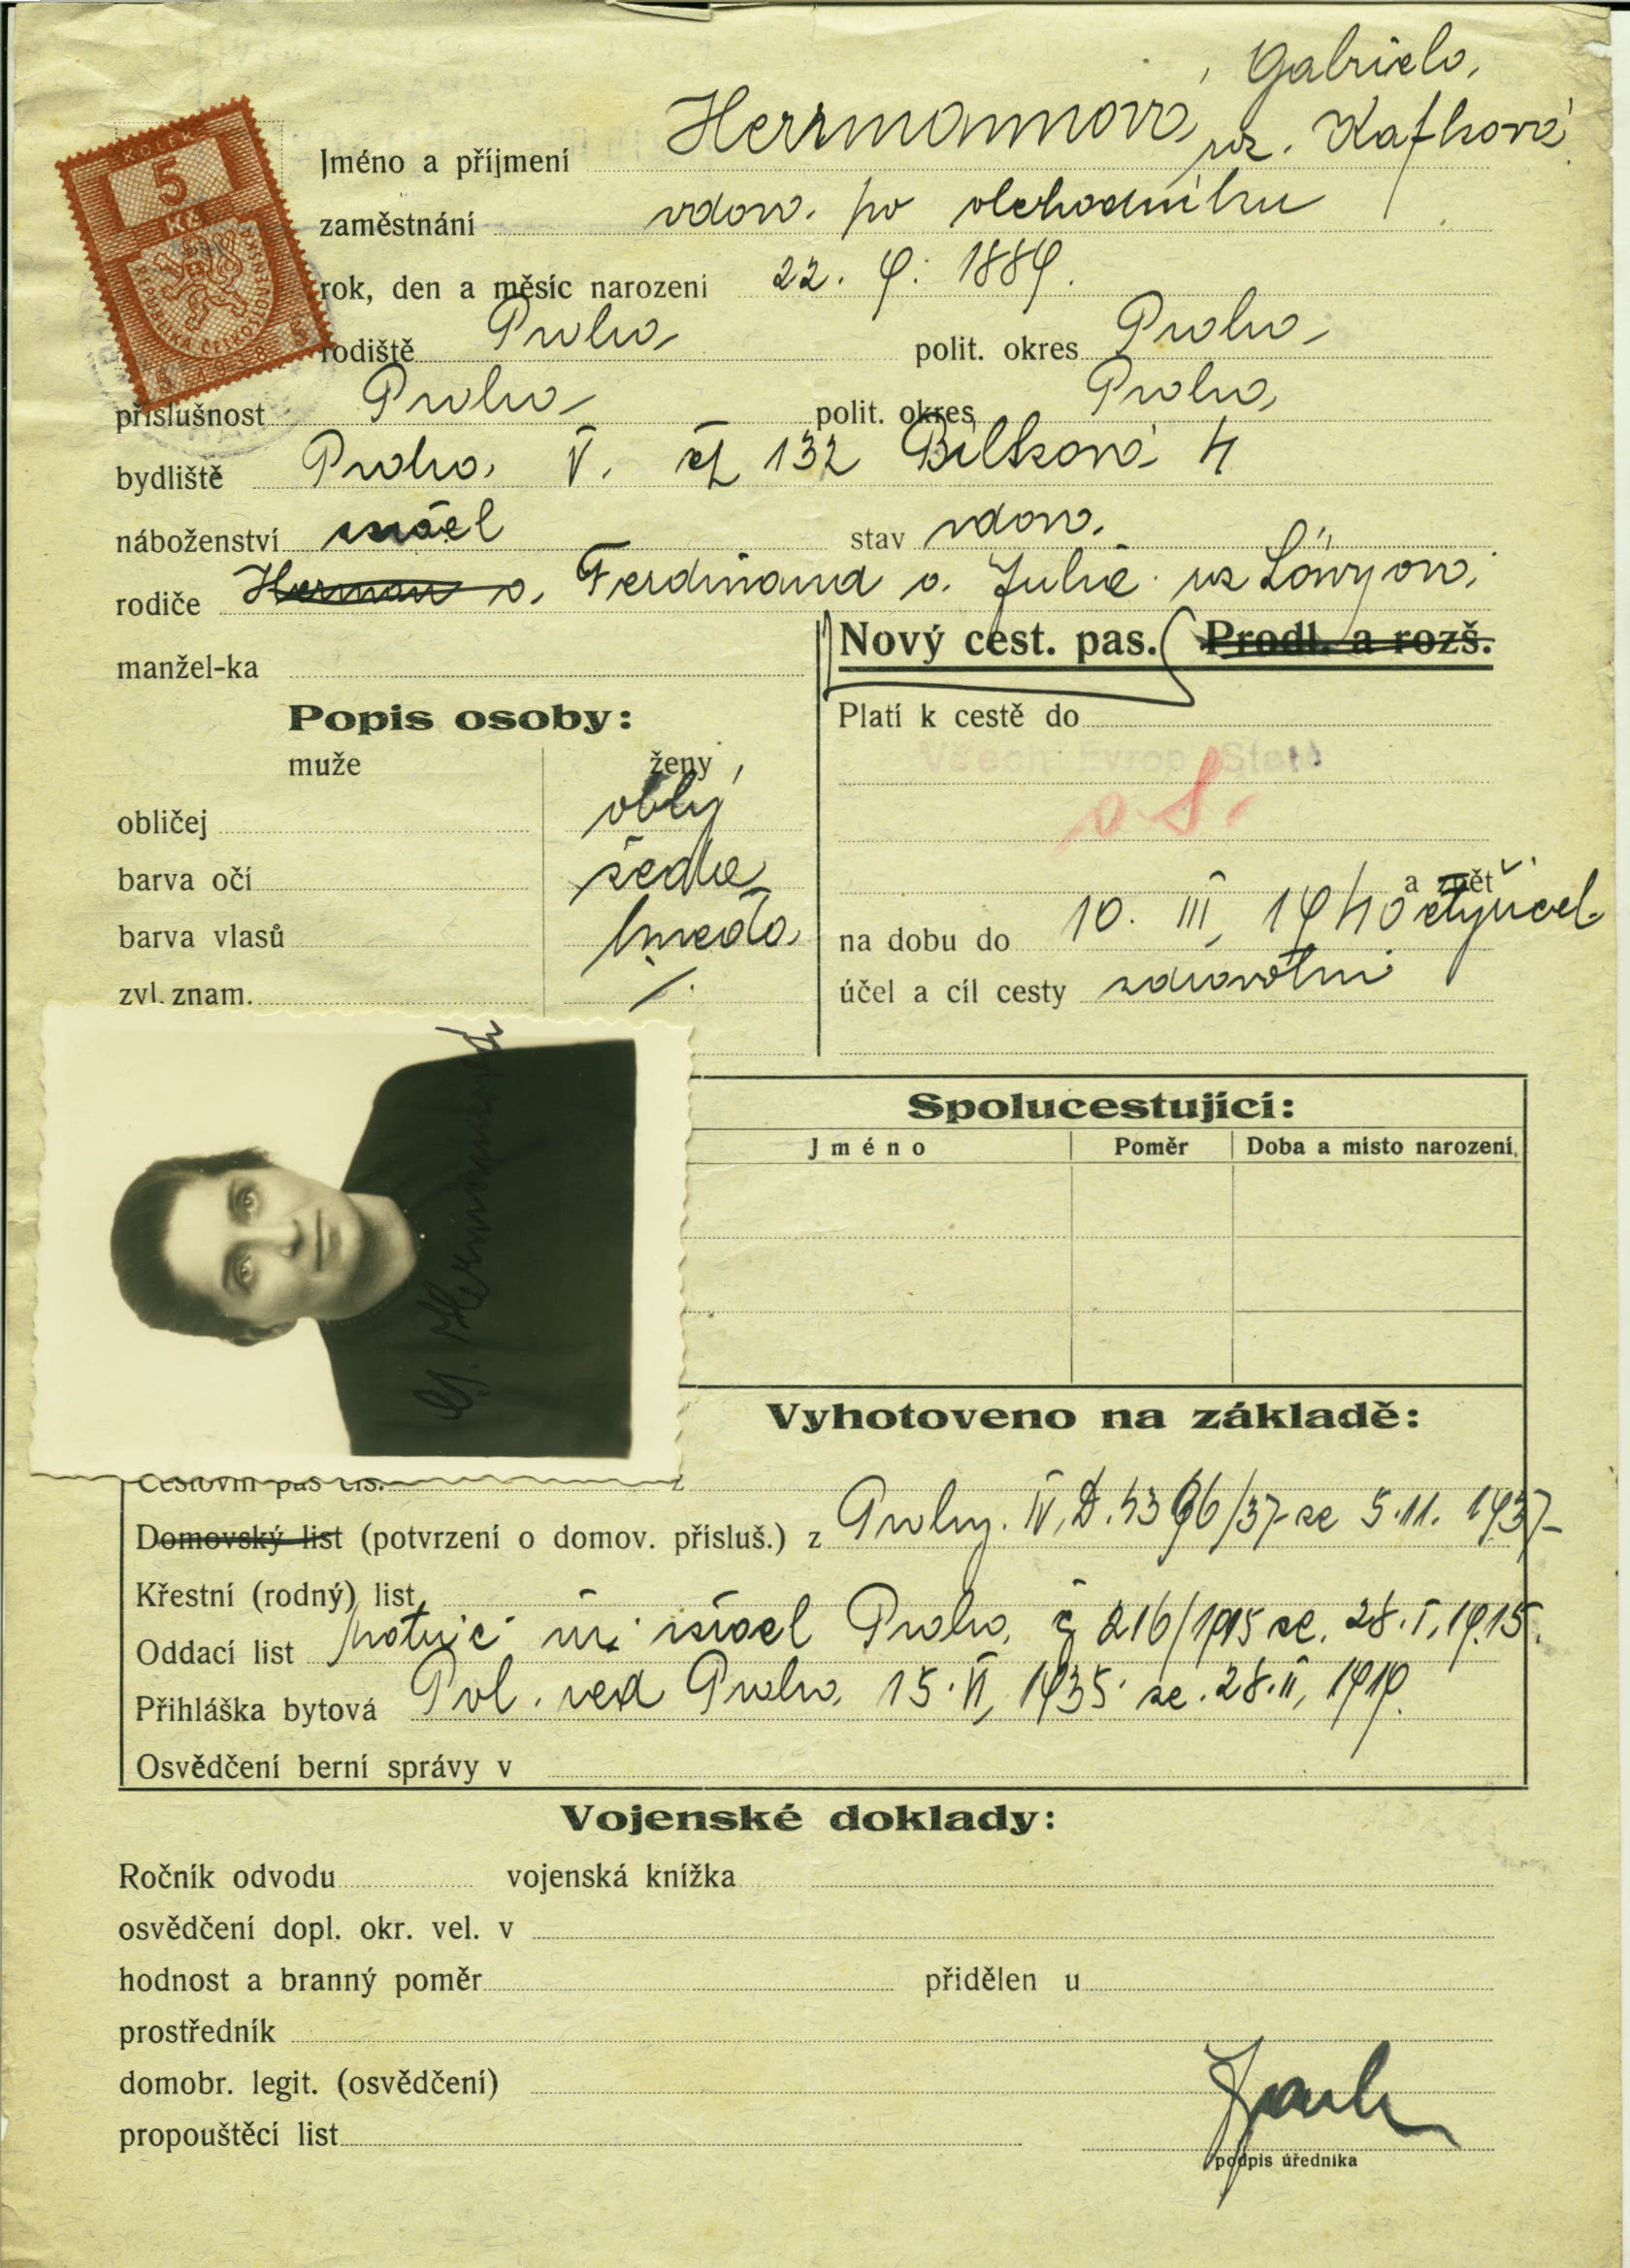 Gabriela,
Jméno a příjmení Herrmannová, roz. Kafková
zaměstnání vdova po obchodníku
rok, den a měsíc narození 22. 9. 1889.
rodiště Praha polit. okres Praha
příslušnost Praha polit. okres Praha
bydliště Praha V. čp 132 Bílkova 4
náboženství israel stav vdova
rodiče Herman a Ferdinand a Julie roz Löwyova
manžel-ka
Nový cest. pas. Prodl. a rozš.
Popis osoby:
Platí k cestě do
muže ženy
Všech evrop. Států
obličej oblý
barva očí šedé
barva vlasů hnědá
zvl. znam. /.
a zpět
na dobu do 10. III. 1940
účel a cíl cesty zdravotní
G. Herrmannová
Spolucestující:
Jméno Poměr Doba a místo narození
Vyhotoveno na základě:
Cestovní pas čís. z
Domovský list (potvrzení o domov. přísluš.) z Prahy. IV. D. 4396/37 ze 5.11. 1937
Křestní (rodný) list
Oddací list matrič. úř. israel Praha č 216/1915 ze. 28. I. 1915.
Přihláška bytová Pol. řed Praha 15. VI. 1935 ze. 28. II. 1919.
Osvědčení berní správy v
Vojenské doklady:
Ročník odvodu vojenská knížka
osvědčení dopl. okr. vel. v
hodnost a branný poměr přidělen u
prostředník
domobr. legit. (osvědčení)
propouštěcí list
podpis úředníka
KOLEK
5
Kč
REPUBLIKA ČESKOSLOVENSKÁ
5 1938 5